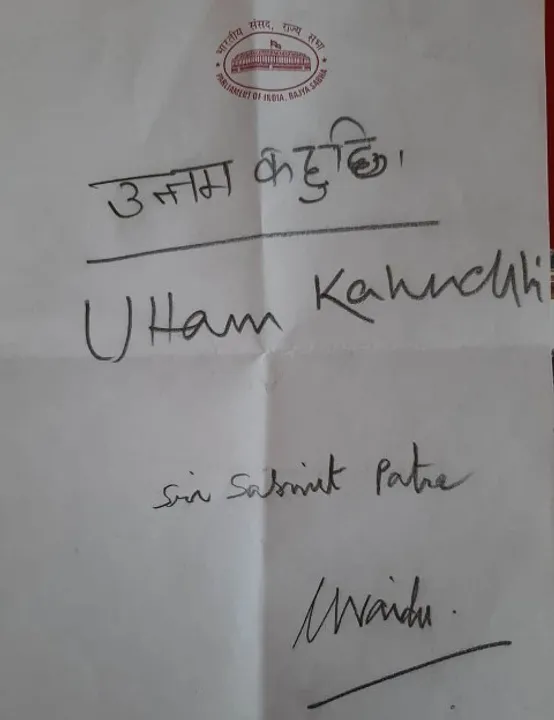 भारतीय संसद, राज्य सभा
PARLIAMENT OF INDIA, RAJYA SABHA
उत्तम कहुछि।
Uttam Kahuchhi
Sri Sasmit Patra
MVNaidu.